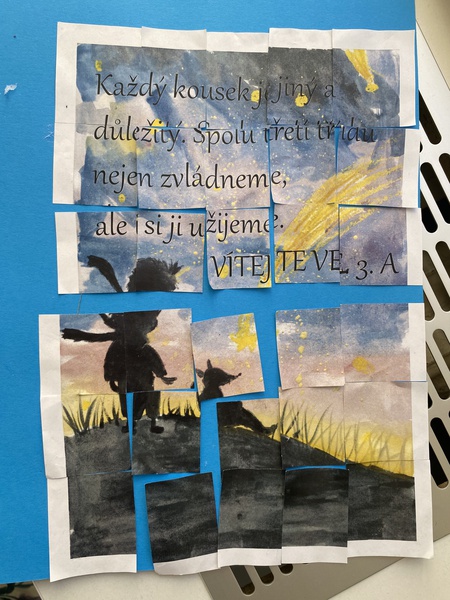 Každý kousek je jiný a
důležitý. Spolu třetí třídu
nejen zvládneme,
ale i si ji užijeme.
VÍTEJTE VE 3. A